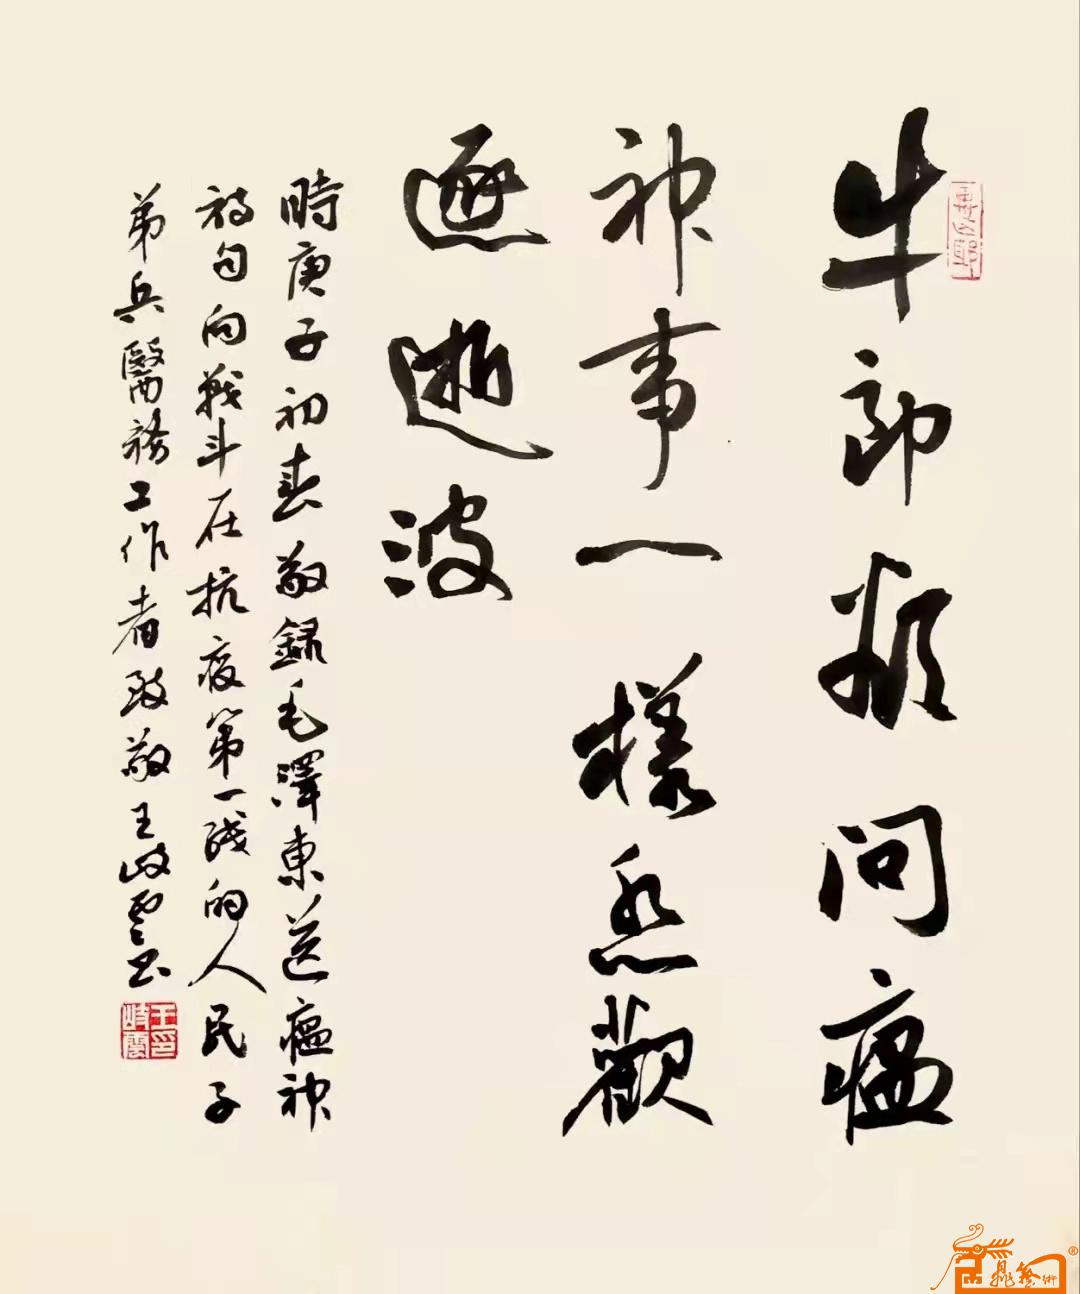 牛郎欲问瘟
神事一樣悲歡
逐逝波
時庚子初春敬錄毛澤東送瘟神
诗句向战斗在抗疫第一线的人民子
弟兵醫務工作者致敬王岐雲书
王岐雲印